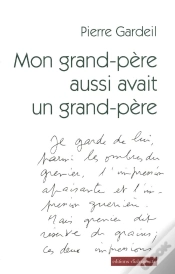 Pierre Gardeil
Mon grand-père
aussi avait
un grand-père
Je garde de lui,
parmi les ombres du
grenier, l'impression
apaisante et l'im-
pression guerrière.
Mais grenier dit
réserve de grains;
ces deux impressions